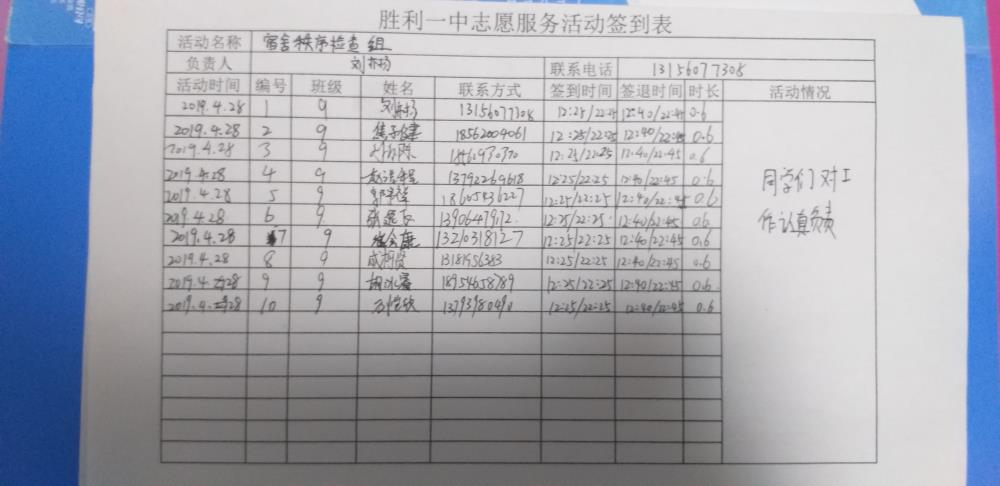 胜利一中志愿服务活动签到表
活动名称 宿舍秩序检查组
负责人 联系电话 13156077308
活动时间 编号 班级 姓名 联系方式 签到时间 签退时间 时长 活动情况
2019.4.28 1 9 13156077308 12:25/22:25 12:40/22:45 0.6
2019.4.28 2 9 18562004061 12:25/22:25 12:40/22:45 0.6
2019.4.28 3 9 12:25/22:25 12:40/22:45 0.6
2019.4.28 4 9 13792269618 12:25/22:25 12:40/22:45 0.6
2019.4.28 5 9 18605436227 12:25/22:25 12:40/22:45 0.6
2019.4.28 6 9 12:25/22:25 12:40/22:45 0.6
2019.4.28 7 9 13210318127 12:25/22:25 12:40/22:45 0.6
2019.4.28 8 9 12:25/22:25 12:40/22:45 0.6
2019.4.28 9 9 18954658789 12:25/22:25 12:40/22:45 0.6
2019.4.28 10 9 12:25/22:25 12:40/22:45 0.6
同学们对工
作认真负责